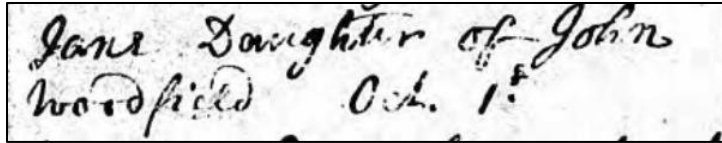 Jane Daughter of John
Woodfield Oct. 1.s